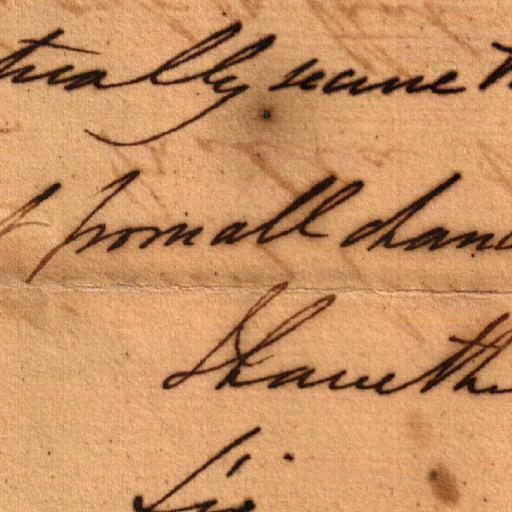 tually secure
from all chan
I have the
Sir